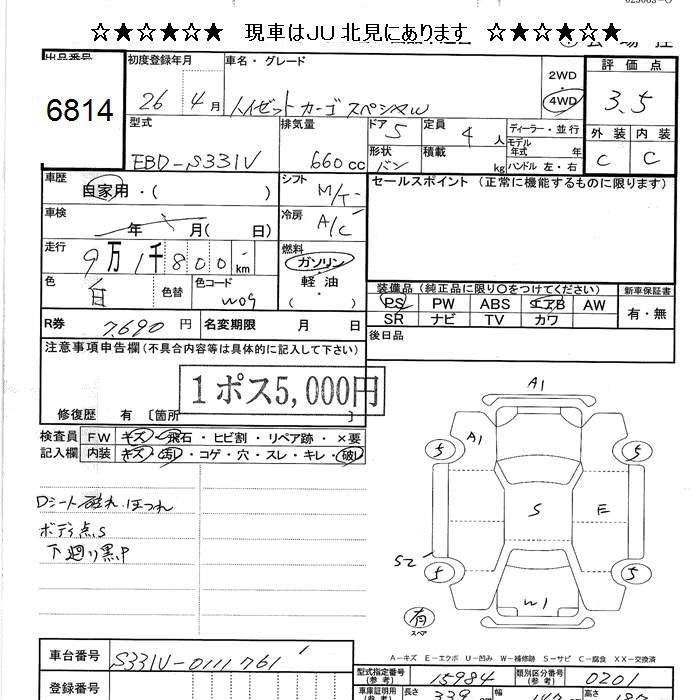 ☆★☆★☆★ 現車はJU北見にあります ☆★☆★☆★
出品番号 初度登録年月 車名・グレード
6814 26年 4月 ハイゼットカーゴ スペシャル 2WD 4WD
評価点
3.5
型式 排気量 ドア 5 定員 4人 ディーラー・並行 外装 内装
EBD-S331V 660cc 形状 バン 積載 kg モデル年式 年 C C
ハンドル 左・右
車歴 自家用・( ) シフト M/T
セールスポイント (正常に機能するものに限ります)
車検 年 月( 日) 冷房 A/C
走行 9万1千800km 燃料 ガソリン 軽油 ( )
色 白 色替 色コード W09
装備品 (純正品に限り〇をつけてください) 新車保証書
PS PW ABS エアB AW 有・無
SR ナビ TV カワ
R券 7690円 名変期限 月 日
後日品
注意事項申告欄 (不具合内容等は具体的に記入して下さい)
1ポス5,000円
修復歴 有 〔箇所 〕
検査員 FW キズ・飛石・ヒビ割・リペア跡・×要
記入欄 内装 キズ・汚レ・コゲ・穴・スレ・キレ・破レ
Dシート破れ.ほつれ
ボディ点S
下廻り黒P
A1
A1
5 5
S E
S2
5 5
W1
有
スペア
A-キズ E-エクボ U-凹み W-補修跡 S-サビ C-腐食 XX-交換済
車台番号 S331V-0111761
型式指定番号(参考) 15984 類別区分番号(参考) 0201
登録番号
車庫証明用(参考) 長さ 339 幅 147 高さ